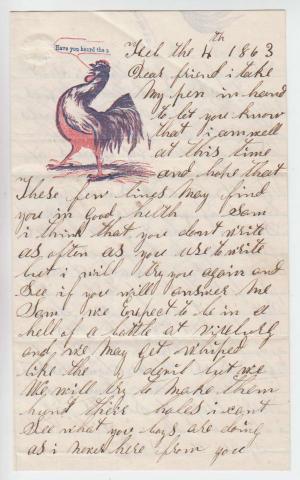 Have you heard the
Feb the 4th 1863
Dear friend i take
My pen in hand
to let you know
that i am well
at this time
and hope that
These few lines may find
you in good helth Sam
i think that you dont write
as often as you use to write
but i will try you again and
see if you will answer me
Sam we Expect to be in a
hell of a battle at
and we may get whiped
like the devil but we
We will try to make them
hunt there holes i cant
See what you boys are doing
as i never here from you